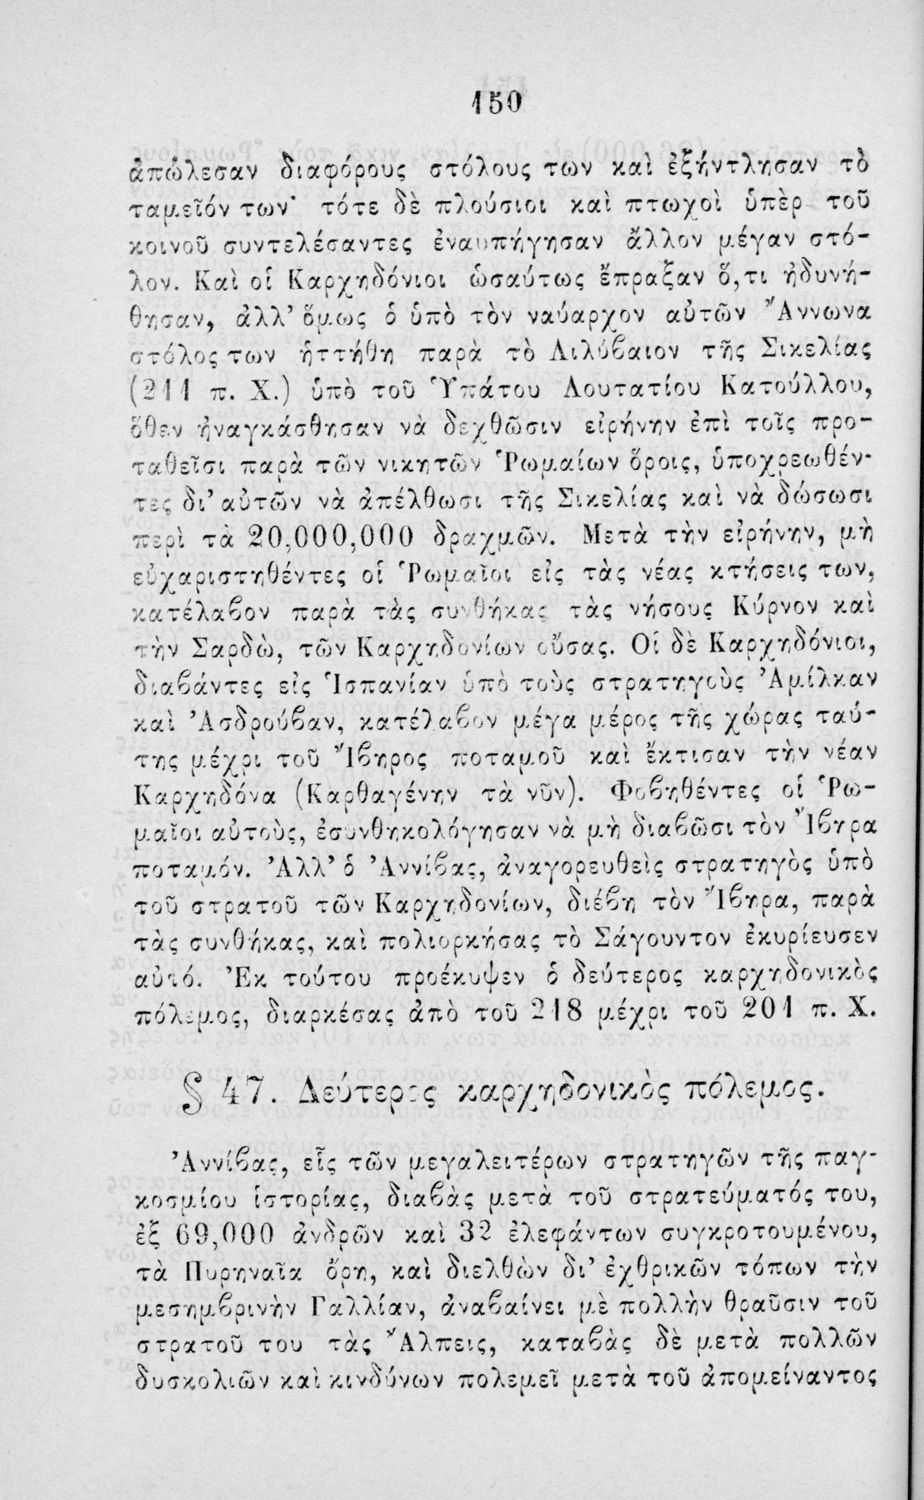 150
ἀπώλεσαν διαφόρους στόλους των καὶ ἐξήντλησαν τὸ
ταμεῖόν των· τότε δὲ πλούσιοι καὶ πτωχοὶ ὑπὲρ τοῦ
κοινοῦ συντελέσαντες ἐναυπήγησαν ἄλλον μέγαν στό-
λον. Καὶ οἱ Καρχηδόνιοι ὡσαύτως ἔπραξαν ὅ,τι ἠδυνή-
θησαν, ἀλλ’ ὅμως ὁ ὑπὸ τὸν ναύαρχον αὐτῶν Ἄννωνα
στόλος των ἡττήθη παρὰ τὸ Λιλύβαιον τῆς Σικελίας
(241 π. Χ.) ὑπὸ τοῦ Ὑπάτου Λουτατίου Κατούλλου,
ὅθεν ἠναγκάσθησαν νὰ δεχθῶσιν εἰρήνην ἐπὶ τοῖς προ-
ταθεῖσι παρὰ τῶν νικητῶν Ῥωμαίων ὅροις, ὑποχρεωθέν-
τες δι’ αὐτῶν νὰ ἀπέλθωσι τῆς Σικελίας καὶ νὰ δώσωσι
περὶ τὰ 20,000,000 δραχμῶν. Μετὰ τὴν εἰρήνην, μὴ
εὐχαριστηθέντες οἱ Ῥωμαῖοι εἰς τὰς νέας κτήσεις των,
κατέλαβον παρὰ τὰς συνθήκας τὰς νήσους Κύρνον καὶ
τὴν Σαρδὼ, τῶν Καρχηδονίων οὔσας. Οἱ δὲ Καρχηδόνιοι,
διαβάντες εἰς Ἱσπανίαν ὑπὸ τοὺς στρατηγοὺς Ἀμίλκαν
καὶ Ἀσδρούβαν, κατέλαβον μέγα μέρος τῆς χώρας ταύ-
της μέχρι τοῦ Ἴβηρος ποταμοῦ καὶ ἔκτισαν τὴν νέαν
Καρχηδόνα (Καρθαγένην τὰ νῦν). Φοβηθέντες οἱ Ῥω-
μαῖοι αὐτοὺς, ἐσυνθηκολόγησαν νὰ μὴ διαβῶσι τὸν Ἴβηρα
ποταμόν. Ἀλλ’ ὁ Ἀννίβας, ἀναγορευθεὶς στρατηγὸς ὑπὸ
τοῦ στρατοῦ τῶν Καρχηδονίων, διέβη τὸν Ἴβηρα, παρὰ
τὰς συνθήκας, καὶ πολιορκήσας τὸ Σάγουντον ἐκυρίευσεν
αὐτό. Ἐκ τούτου προέκυψεν ὁ δεύτερος καρχηδονικὸς
πόλεμος, διαρκέσας ἀπὸ τοῦ 218 μέχρι τοῦ 201 π. Χ.
§ 47. Δεύτερος καρχηδονικὸς πόλεμος.
Ἀννίβας, εἷς τῶν μεγαλειτέρων στρατηγῶν τῆς παγ-
κοσμίου ἱστορίας, διαβὰς μετὰ τοῦ στρατεύματός του,
ἐξ 69,000 ἀνδρῶν καὶ 32 ἐλεφάντων συγκροτουμένου,
τὰ Πυρηναῖα ὄρη, καὶ διελθὼν δι’ ἐχθρικῶν τόπων τὴν
μεσημβρινὴν Γαλλίαν, ἀναβαίνει μὲ πολλὴν θραῦσιν τοῦ
στρατοῦ του τὰς Ἄλπεις, καταβὰς δὲ μετὰ πολλῶν
δυσκολιῶν καὶ κινδύνων πολεμεῖ μετὰ τοῦ ἀπομείναντος